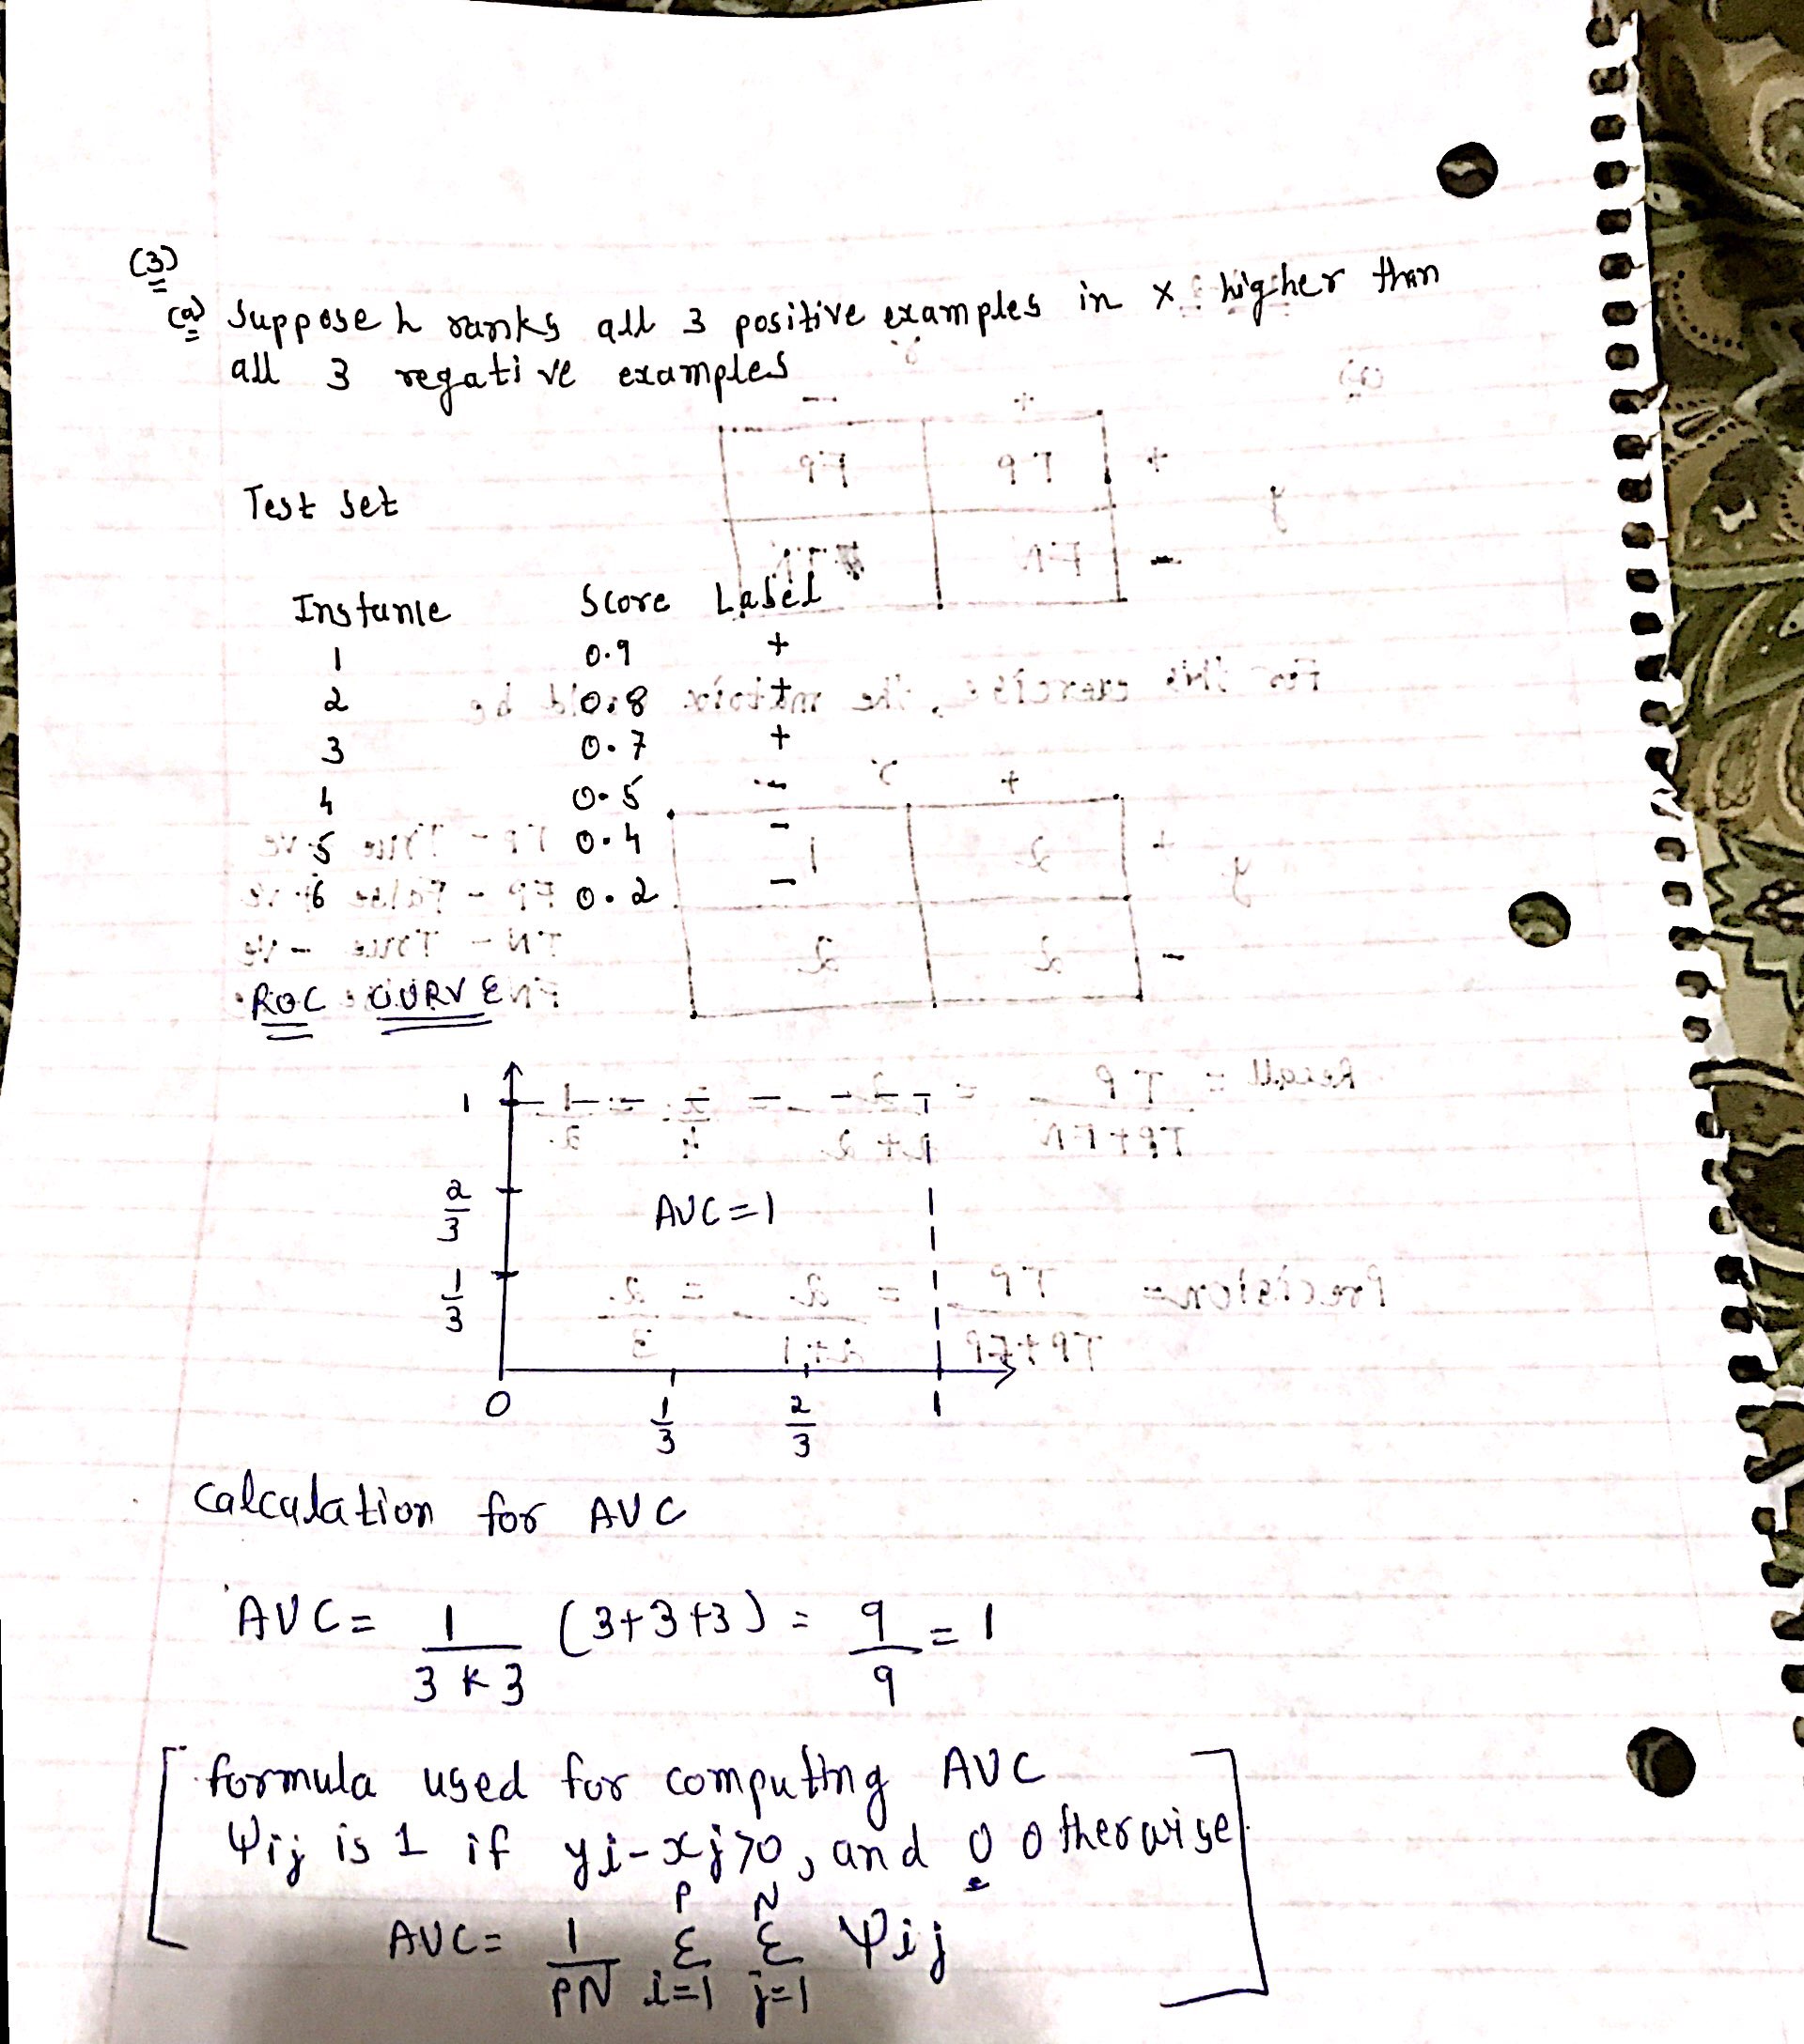 (3)
(a) Suppose h ranks all 3 positive examples in x higher than
all 3 negative examples
Test set
Instance Score Label
1 0.9 +
2 0.8 +
3 0.7 +
4 0.5 -
5 0.4 -
6 0.2 -
ROC CURVE
1
2/3
AUC=1
1/3
0 1/3 2/3 1
calculation for AUC
AUC = 1/(3*3) (3+3+3) = 9/9 = 1
[formula used for computing AUC
Ψij is 1 if yi-xj>0, and 0 otherwise
AUC = 1/PN Σ_{i=1}^{P} Σ_{j=1}^{N} Ψij]